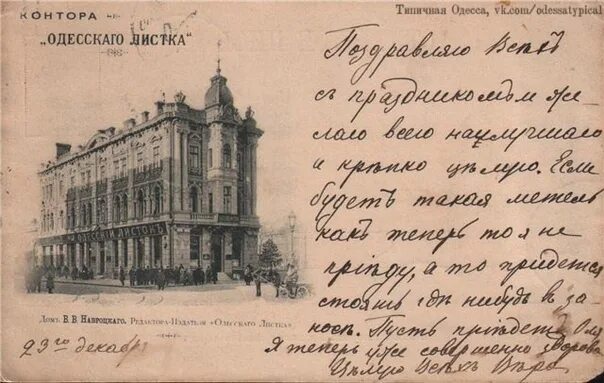 Типичная Одесса, vk.com/odessatypical
КОНТОРА
"ОДЕССКАГО ЛИСТКА"
Поздравляю Всѣхъ
съ праздникомъ и же-
лаю всего наилучшаго
и крѣпко цѣлую. Если
будетъ такая метель
какъ теперь то я не
пріѣду, а то придется
стоять гдѣ нибудь в за-
носѣ. Пусть пріѣдетъ Оля
Я теперь уже совершенно здорова
Цѣлую Всѣхъ Вѣра
ОДЕССКІЙ ЛИСТОКЪ
Домъ В.В. Навроцкаго, Редактора-Издателя «Одесскаго Листка»
23го декабр